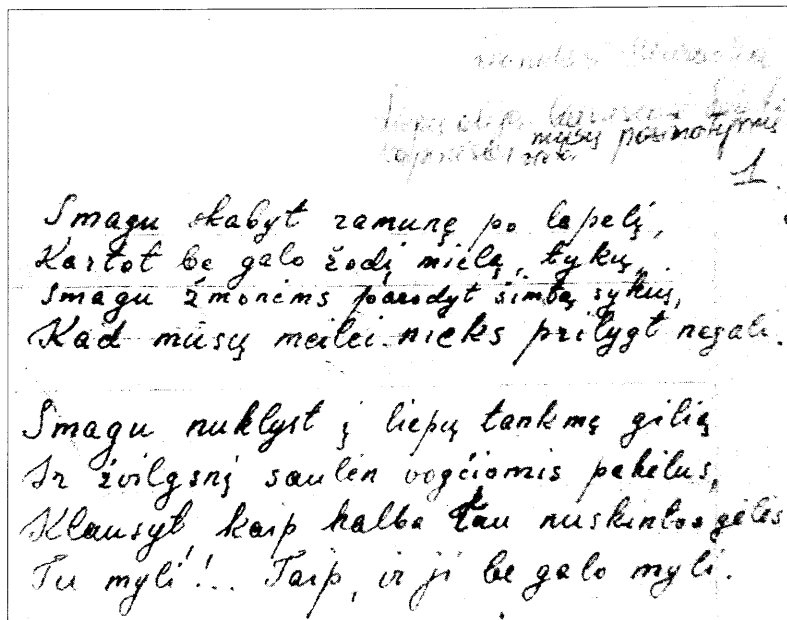 mūsų
1.
Smagu skabyt ramunę po lapelį,
Kartot be galo žodį mielą, tykų,
Smagu žmonėms parodyt šimtą sykių,
Kad mūsų meilei nieks prilygt negali.
Smagu nuklyst į liepų tankmę gilią
Ir žvilgsnį saulėn vogčiomis pakėlus,
Klausyt, kaip kalba Tau nuskintos gėlės
Tu myli!.. Taip, ir ji be galo myli.